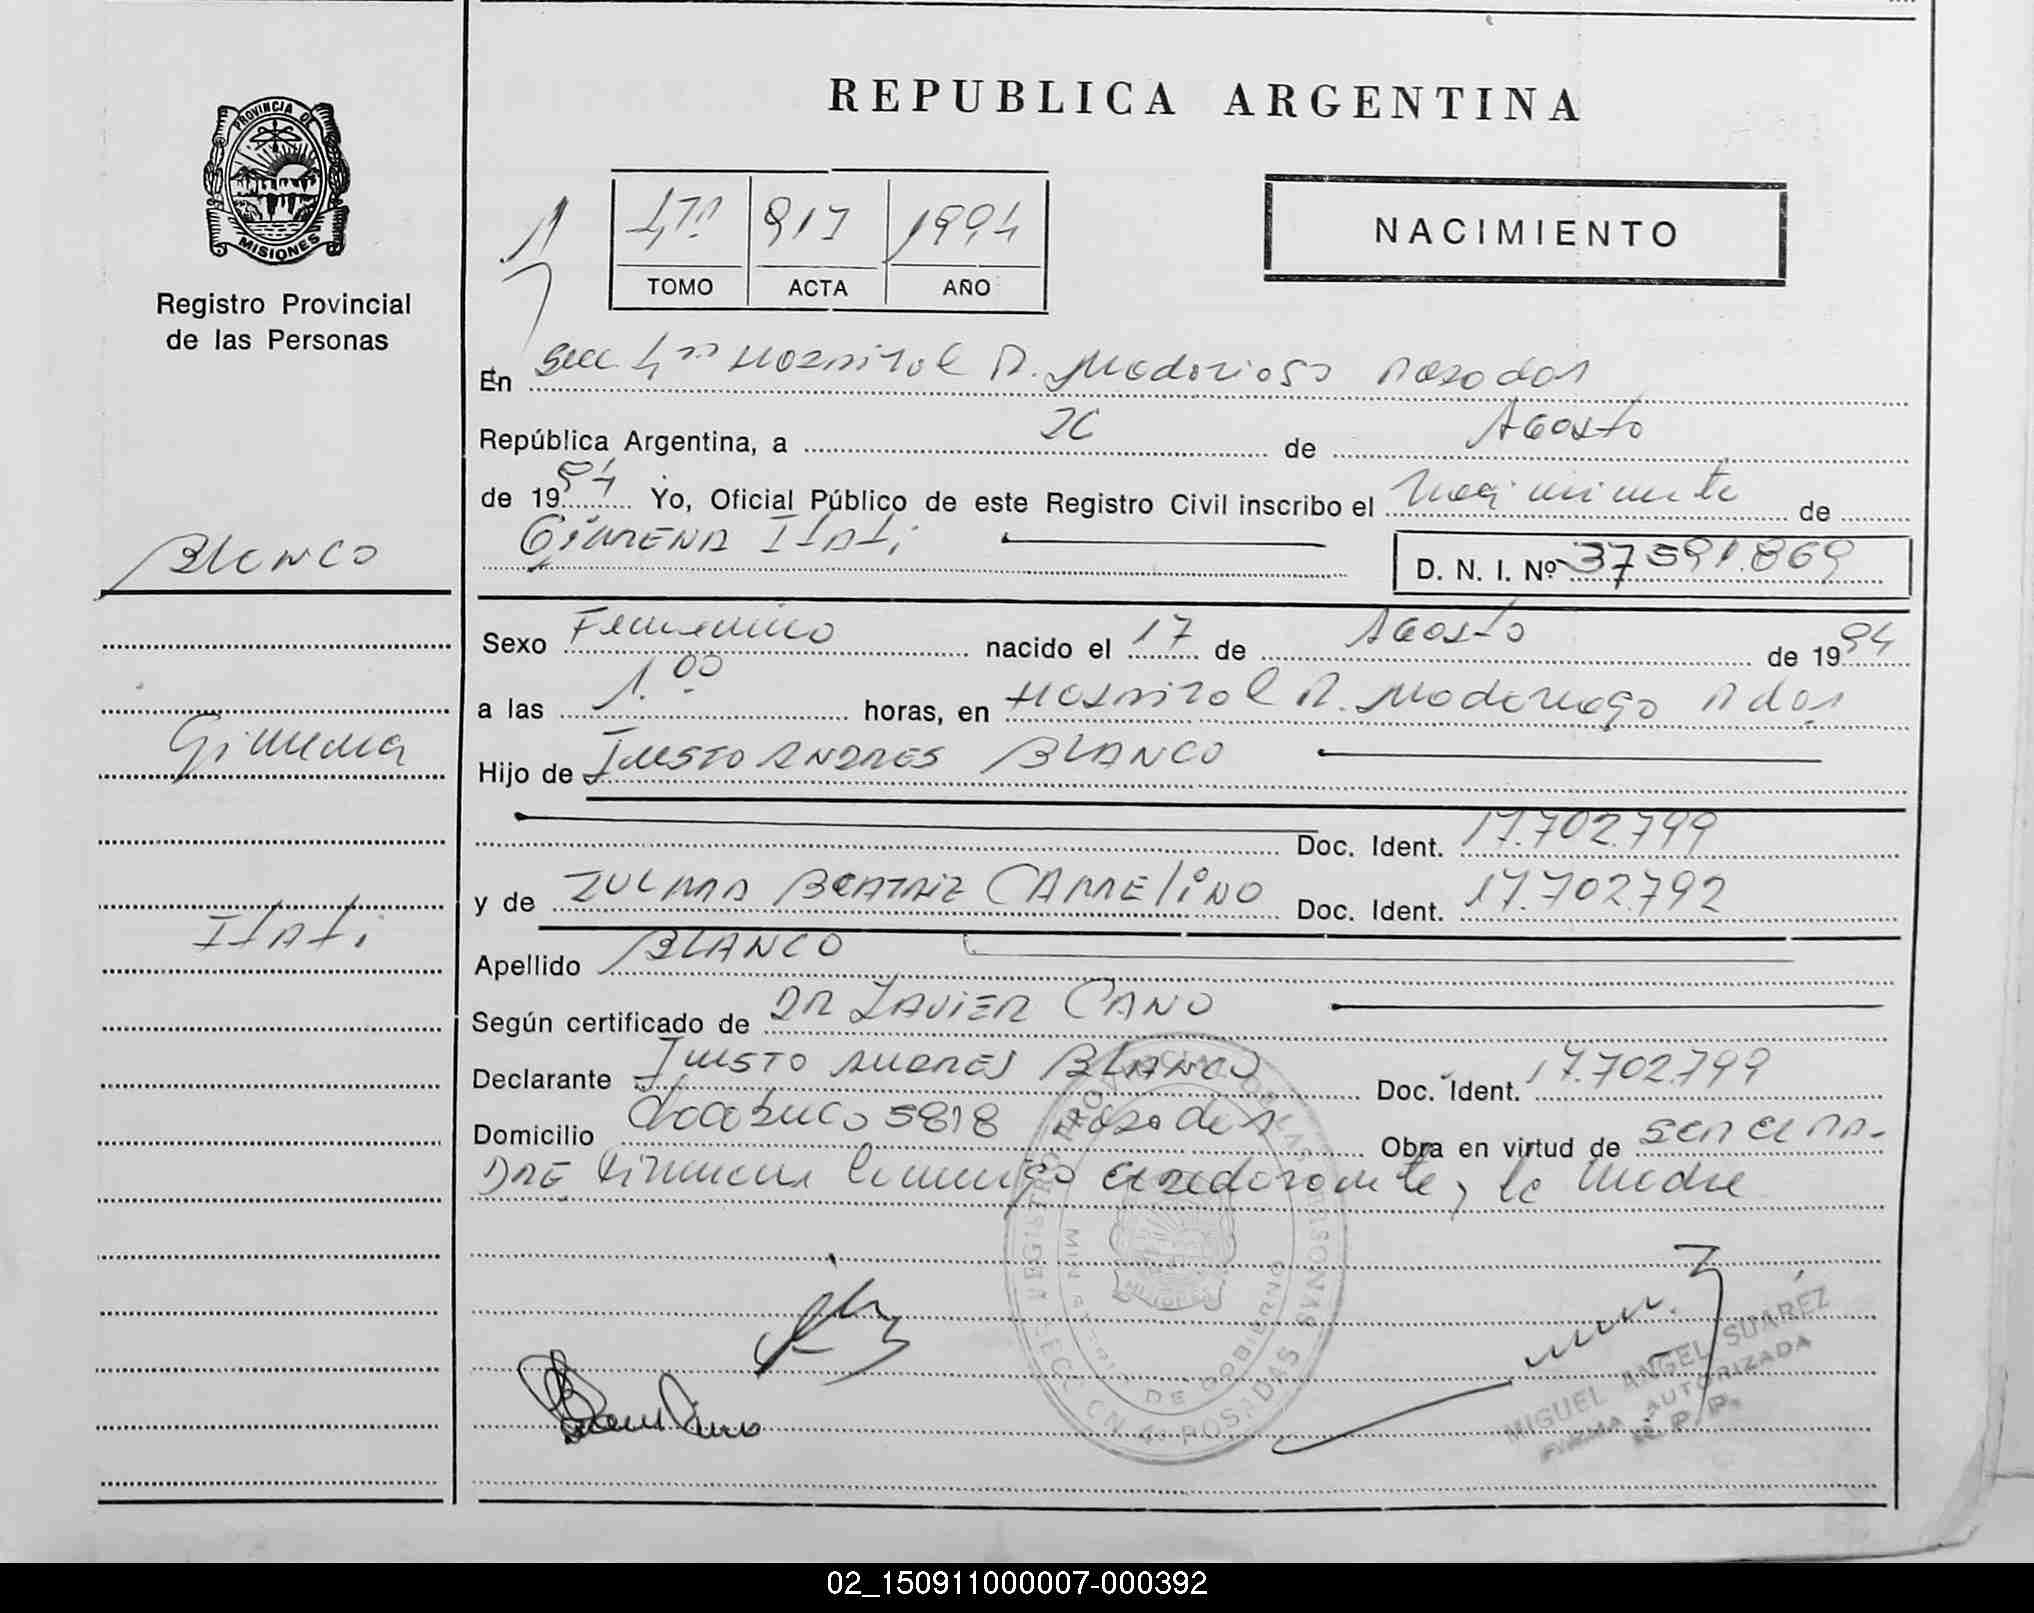 REPUBLICA ARGENTINA
PROVINCIA DE
MISIONES
Registro Provincial
de las Personas
NACIMIENTO
1 4to 917 1994
TOMO ACTA AÑO
En Secc 4ta Hospital R. Madariaga Posadas
República Argentina, a 26 de Agosto
de 1994 Yo, Oficial Público de este Registro Civil inscribo el Nacimiento de
Gimena Itati D. N. I. Nº 37591.869
Blanco
Gimena
Itati
Sexo Femenino nacido el 17 de Agosto de 1994
a las 1.00 horas, en Hospital R. Madariaga Pdas
Hijo de Justo Andres BLANCO
Doc. Ident. 17.702.799
y de ZULMA BEATRIZ CAMELINO Doc. Ident. 17.702.792
Apellido BLANCO
Según certificado de DR JAVIER CANO
Declarante Justo Andres BLANCO Doc. Ident. 17.702.799
Domicilio Chacabuco 5818 Posadas Obra en virtud de ser el PA-
DRE firman conmigo el declarante, la Madre
REGISTRO PROVINCIAL DE LAS PERSONAS
MINISTERIO DE GOBIERNO
SECCION 4 POSADAS
MIGUEL ANGEL SUAREZ
FIRMA AUTORIZADA
R. P. P.
02_150911000007-000392